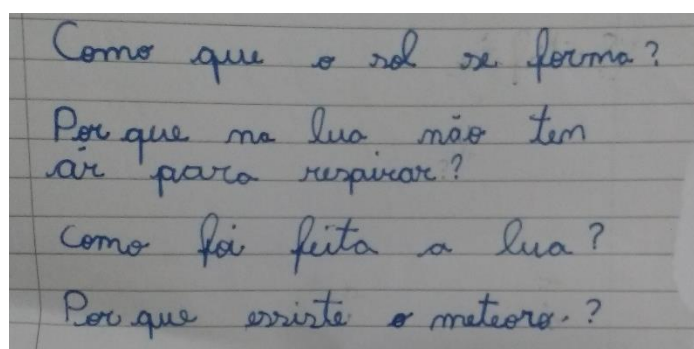 Como que o sol se forma?
Por que na lua não tem
ár para respirar?
Como foi feita a lua?
Por que essiste o meteoro.?